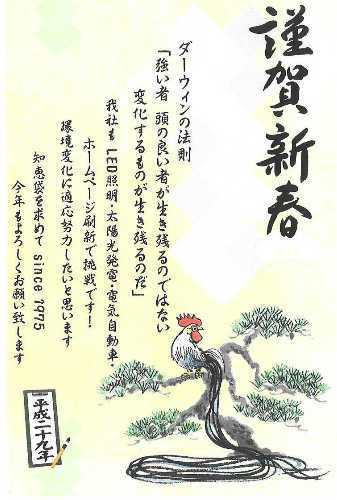 謹賀新春
ダーウィンの法則
「強い者 頭の良い者が生き残るのではない
変化するものが生き残るのだ」
我社も LED照明・太陽光発電・電気自動車・
ホームページ刷新で挑戦です！
環境変化に適応努力したいと思います
知恵袋を求めて since 1975
今年もよろしくお願い致します
平成二十九年